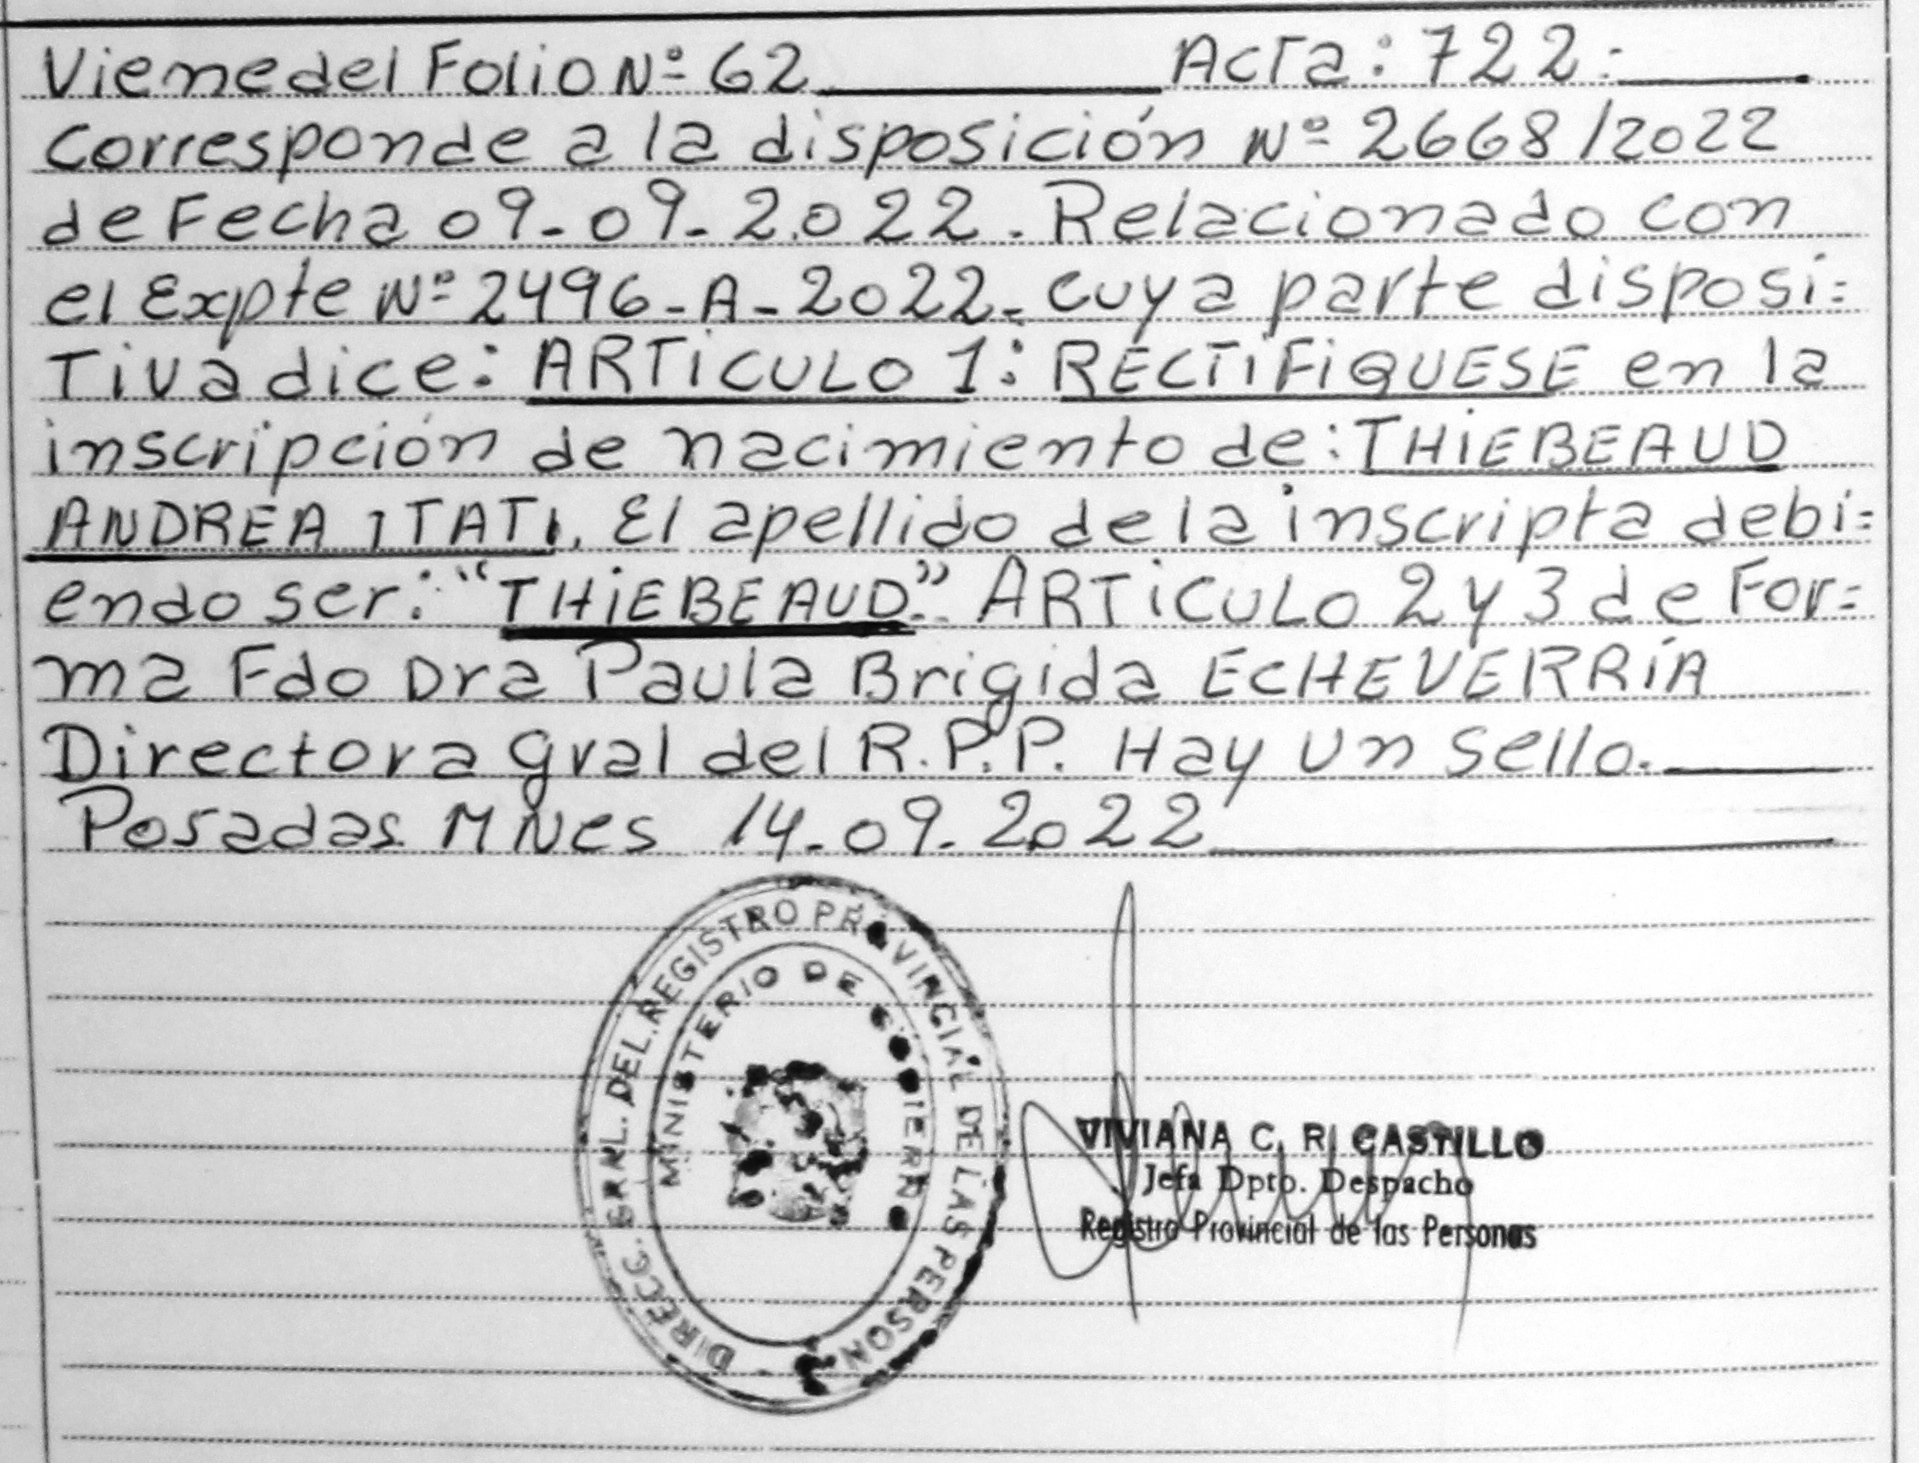 Viene del Folio Nº 62 Acta: 722:
Corresponde a la disposición Nº 2668/2022
de Fecha 09-09-2022. Relacionado con
el Expte Nº 2496-A-2022- cuya parte disposi=
Tiva dice: ARTICULO 1: RECTIFIQUESE en la
inscripción de nacimiento de: THIEBEAUD
ANDREA ITATI. El apellido de la inscripta debi=
endo ser: "THIEBEAUD". ARTICULO 2 y 3 de For=
ma Fdo Dra Paula Brigida ECHEVERRÍA
Directora gral del R.P.P. Hay un sello.
Posadas MNes 14-09-2022
DIRECC. GRAL. DEL REGISTRO PROVINCIAL DE LAS PERSON
MINISTERIO DE GOBIERNO
VIVIANA C. R. CASTILLO
Jefa Dpto. Despacho
Registro Provincial de las Personas